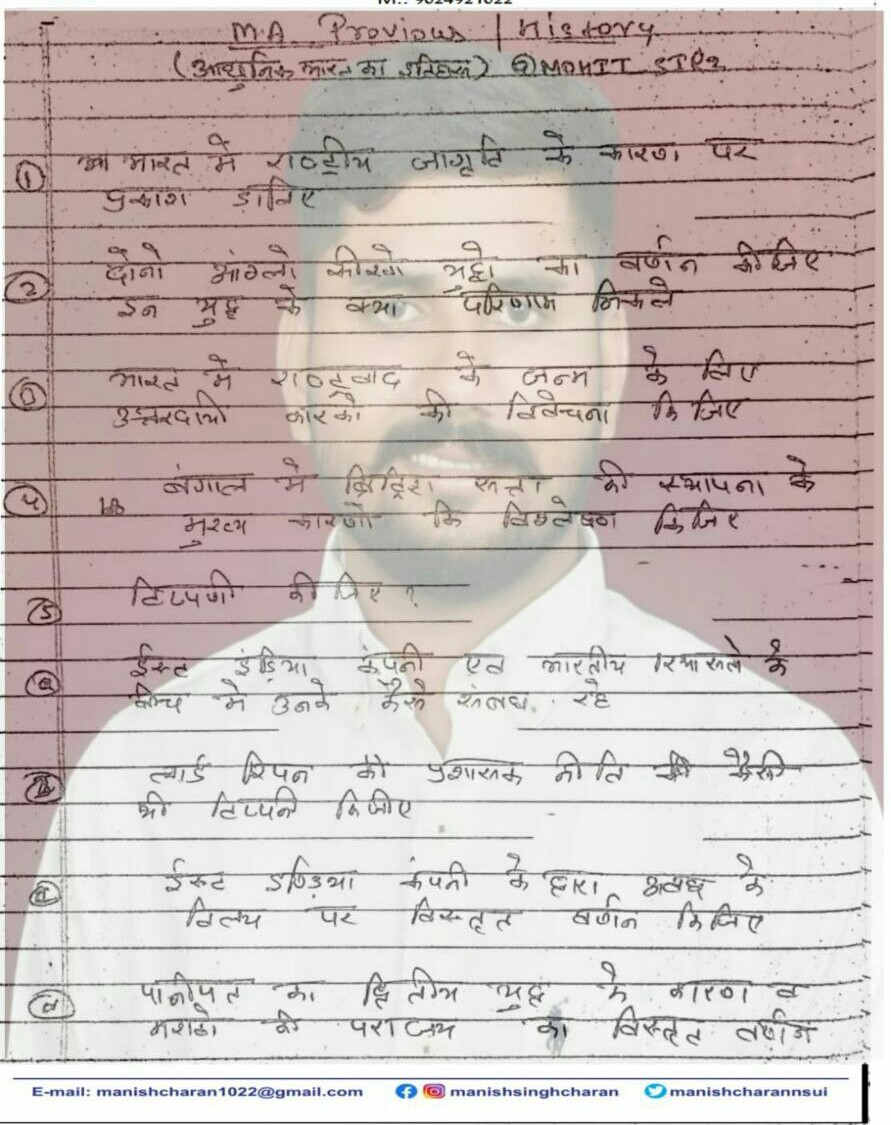 M.: 9024921022
M.A. Previous | History
(आधुनिक भारत का इतिहास) @MOHIT
① भारत में राष्ट्रीय जागृति के कारण पर
प्रकाश डालिए
② दोनो आंग्लो सीखो युद्दो का वर्णन कीजिए
इन युद्द के क्या परिणाम निकले
③ भारत में राष्ट्रवाद के जन्म के लिए
उत्तरदायी कारको की विवेचना किजिए
④ बंगाल में ब्रिटिश सत्ता की स्थापना के
मुख्य कारणो कि विश्लेषण किजिए
⑤ टिप्पणी कीजिए ?
ईस्ट इंडिया कंपनी एव भारतीय रियासतो के
बीच मे उनके कैसे संबध रहे
लार्ड रिपन की प्रशासक नीति की कैसी
थी टिप्पनी किजीए
ईस्ट इण्डिया कंपनी के द्वारा अवध के
विलय पर विस्तृत वर्णन किजिए
पानीपत का द्वितीय युद्द के कारण व
मराठो की पराजय का विस्तृत वर्णन
E-mail: manishcharan1022@gmail.com manishsinghcharan manishcharannsui